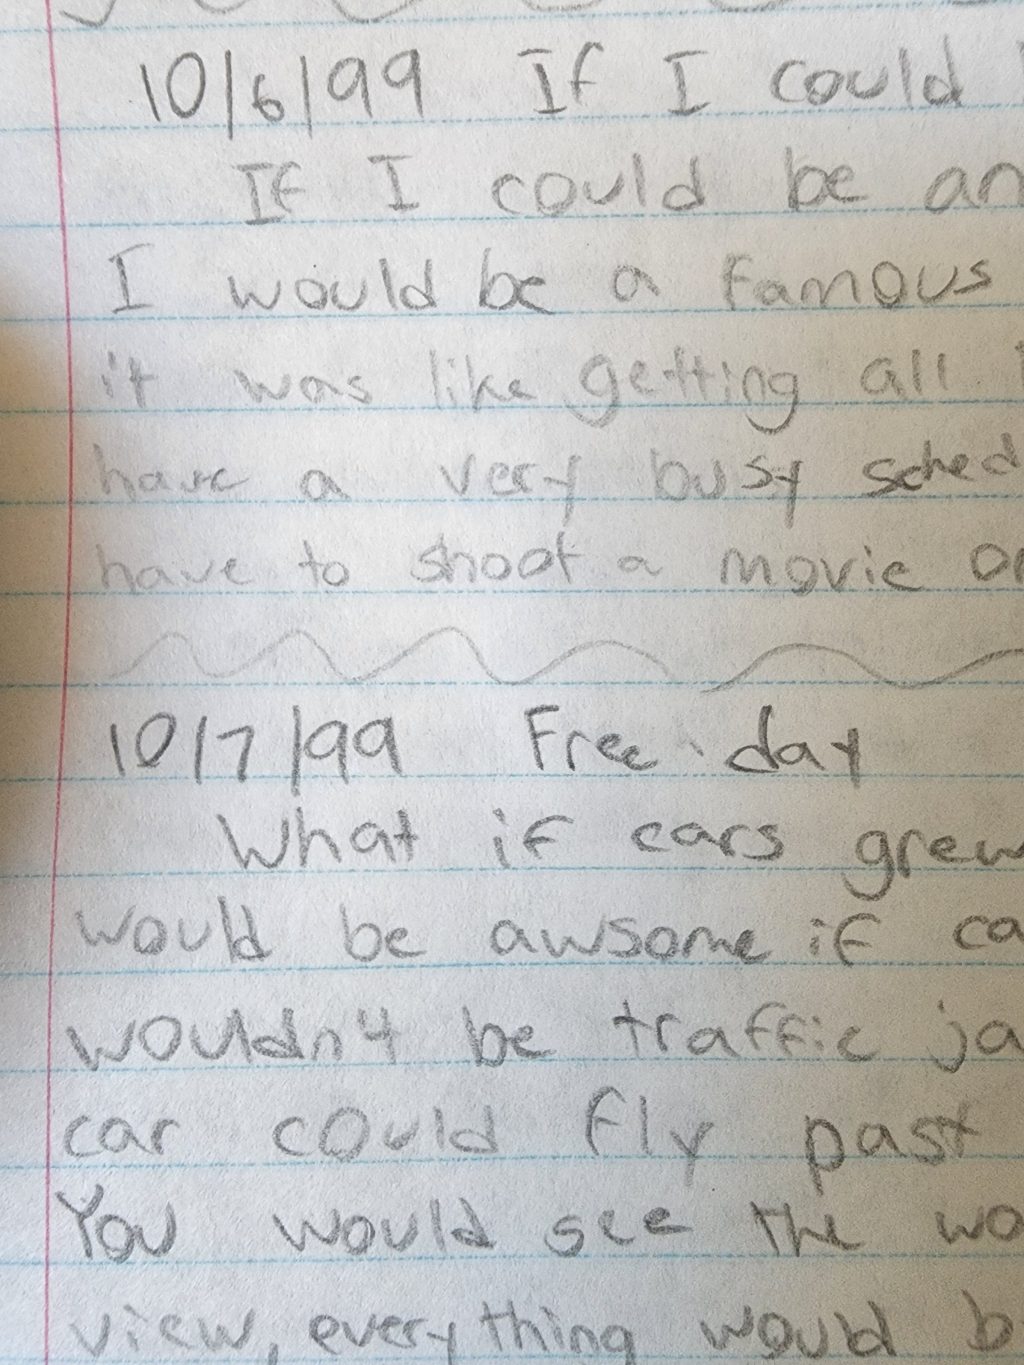 10/6/99 If I could
If I could be an
I would be a famous
it was like getting all
have a very busy sched
have to shoot a movie or
10/7/99 Free day
What if cars grew
would be awsome if ca
wouldn't be traffic ja
car could fly past
You would see the wo
view, everything would b